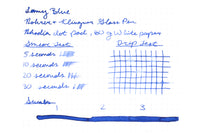 Lamy Blue
Rohrer + Klingner Glass Pen
Rhodia dot pad, 80 g White paper
Smear Test
Drop Test
5 seconds
10 seconds
20 seconds
30 seconds
Swabs
1 2 3